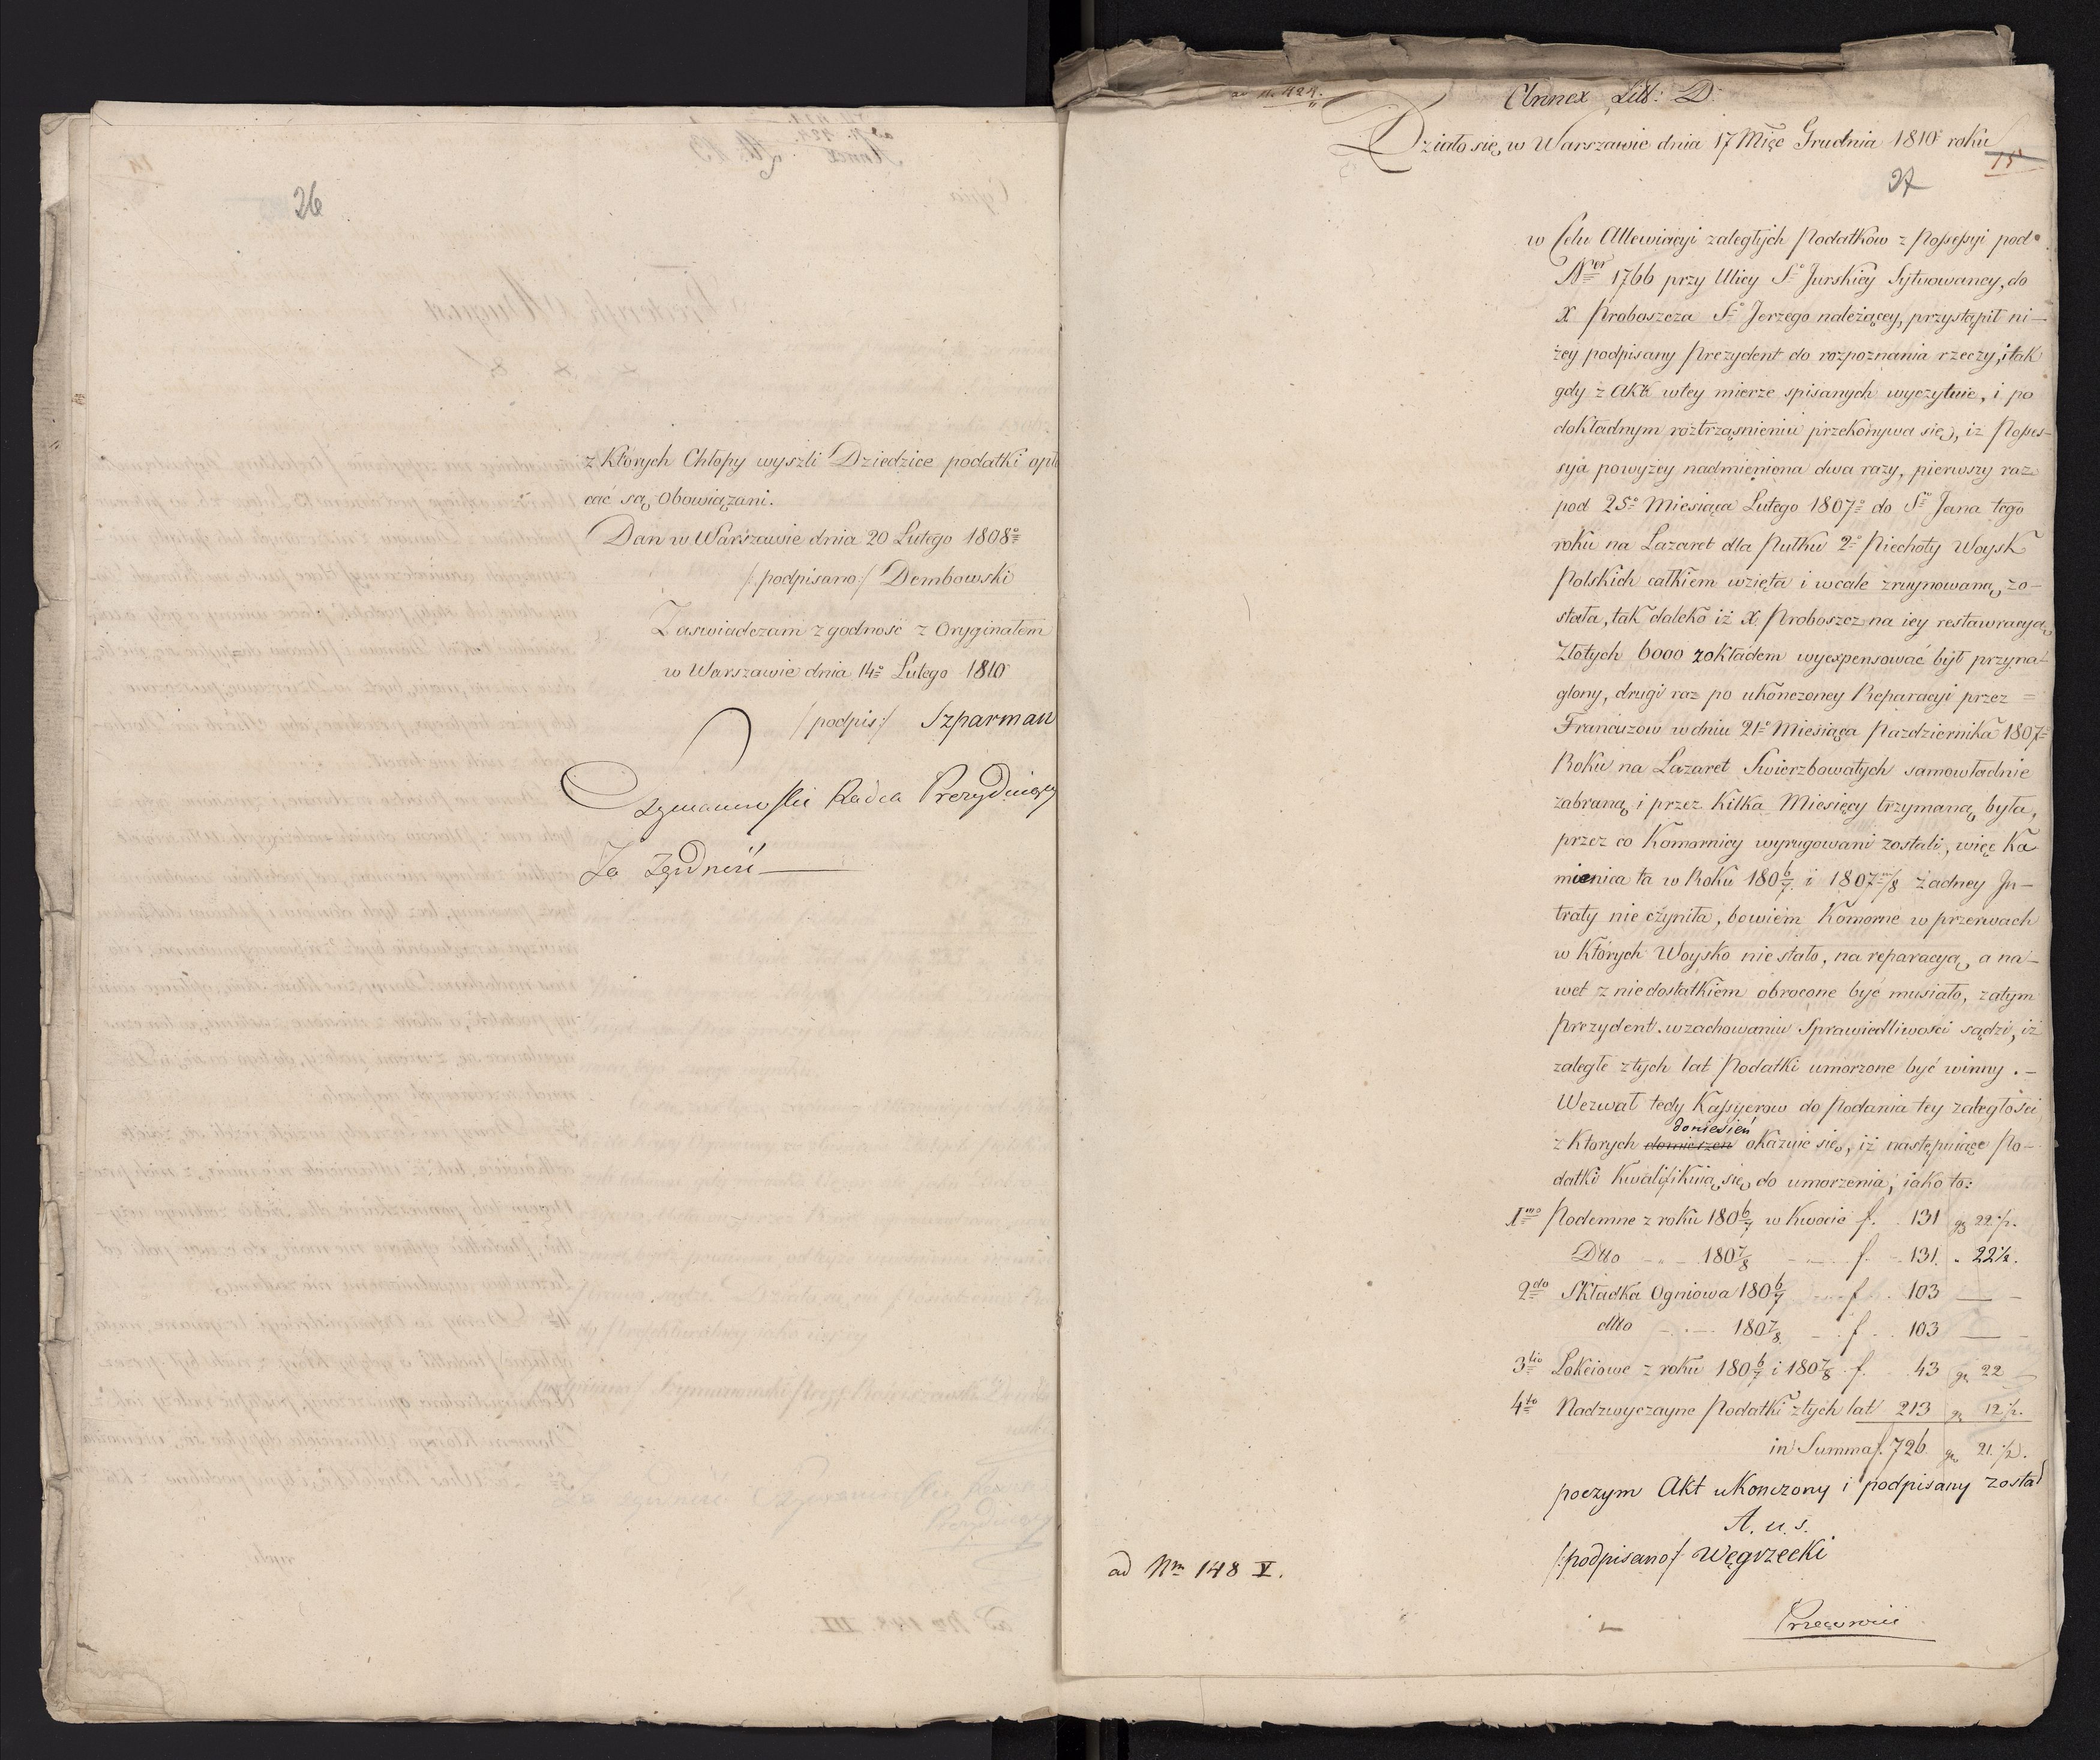 26
z których Chłopy wyszli Dziedzice podatki opła
cać są obowiązani.
Dan w Warszawie dnia 20 Lutego 1808o
/:podpisano:/ Dembowski
Zaswiadczam zgodność z Oryginałem
w Warszawie dnia 14o Lutego 1810
/:podpis:/ Szparman
Szymanowski Radca Prezydujący
Za Zgodność
ad N. 424.
Annex Litt: D.
Działo się w Warszawie dnia 17 Mięc Grudnia 1810o roku
15
27
w Celu Allewiacyi zaległych Podatków z Possessyi pod
Nrer 1766 przy Ulicy So Jurskiey Sytuowaney, do
X Proboszcza So Jerzego należącey, przystąpił ni-
żey podpisany Prezydent do rozpoznania rzeczy, i tak
gdy z Akt wtey mierze spisanych wyczytuie, i po
dokładnym roztrząśnieniu przekonywa się, iż Posses-
syja powyżey nadmieniona dwa razy, pierwszy raz
pod 25o Miesiąca Lutego 1807o do So Jana tego
roku na Lazaret dla Pułku 2o Piechoty Woysk
Polskich całkiem wzięta i wcale zruynowaną zo-
stała, tak daleko iż X Proboszcz na iey restawracyą
Złotych 6000 zokładem wyexpensować był przyna-
glony, drugi raz po ukończoney Reparacyi przez =
Francuzow w dniu 21o Miesiąca Pazdziernika 1807o
Roku na Lazaret Swierzbowatych samowładnie
zabraną i przez kilka Miesięcy trzymaną była,
przez co Komornicy wyrugowani zostali, więc Ka-
mienica ta w Roku 1806/7 i 1807/8 żadney In-
traty nie czyniła, bowiem Komorne w przerwach
w których Woysko nie stało, na reparacyą, a na-
wet z niedostatkiem obrocone być musiało, zatym
Prezydent w zachowaniu Sprawiedliwości sądzi, iż
zaległe z tych lat Podatki umorzone być winny. -
Wezwał tedy Kassyerow do Podania tey zaległości
doniesień
z ktorych okazuie się, iż następuiące Po-
datki kwalifikuią się do umorzenia, iako to:
1mo Podemne z roku 1806/7 w kwocie f. 131 gr 22 1/2.
Dtto - - - 1807/8 - - f. - 131. " 22 1/2.
2do Składka Ogniowa 1806/7 - - f. 103 — -
dtto - - - 1807/8 - f. 103 — -
3tio Łokciowe z roku 1806/7 i 1807/8 f. 43 gr 22 -
4to Nadzwyczayne Podatki z tych lat 213 gr 12 1/2.
in Summa f. 726 gr 21 1/2.
poczym Akt ukonczony i podpisany został
A. u. s.
/:podpisano:/ Węgrzecki
ad Nrm 148 V.